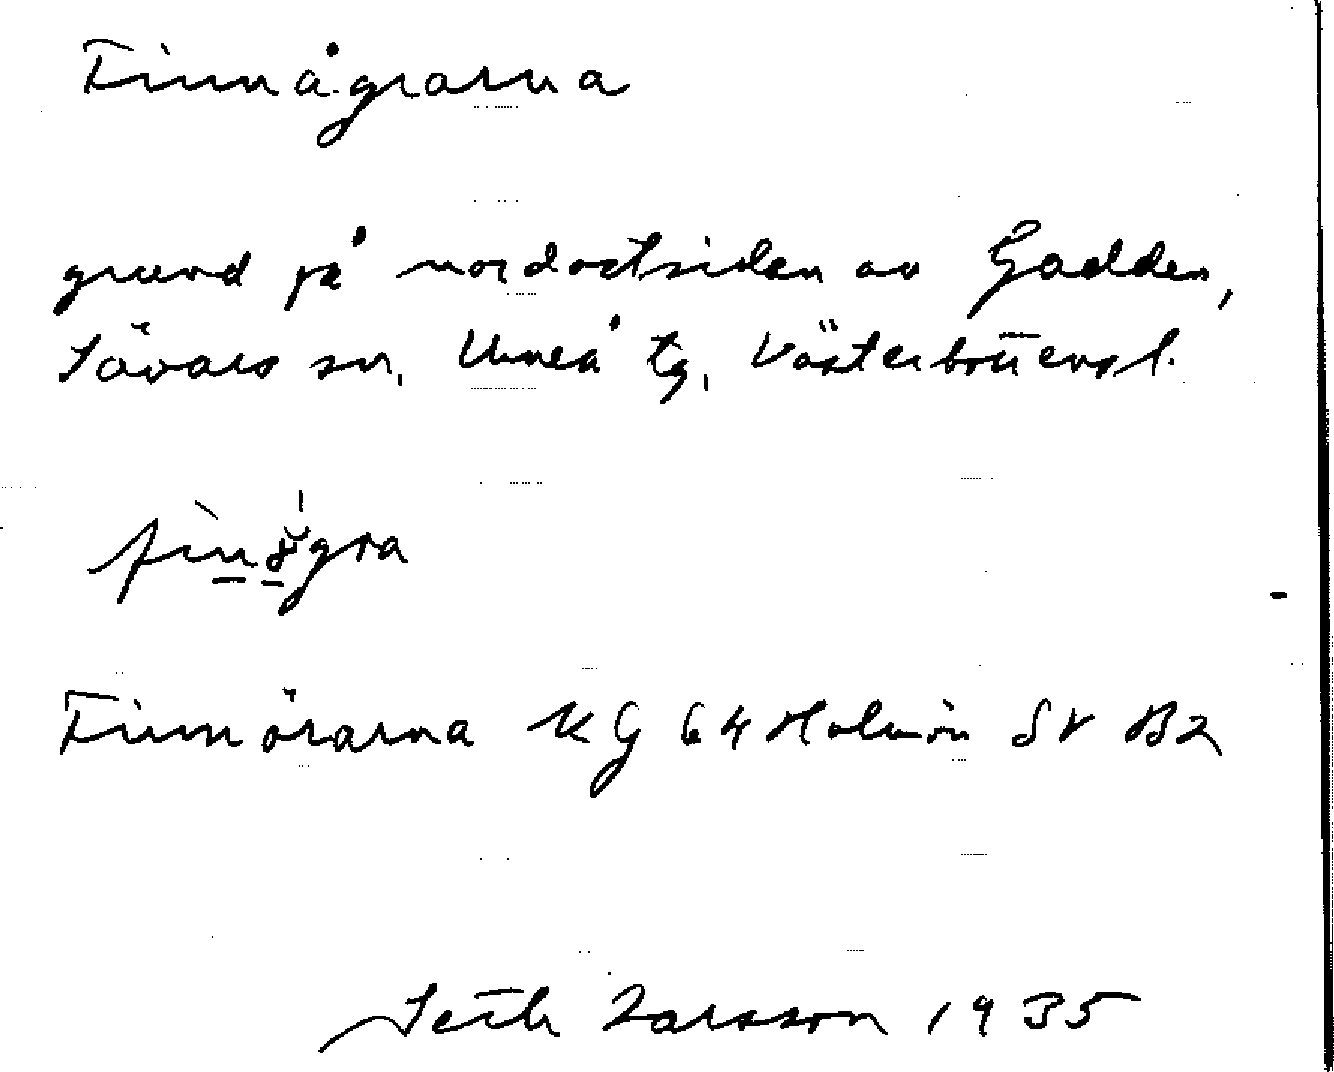 Finnågrarna
grund på nordostsidan av Gadden,
Sävars sn, Umeå tg, Västerbottens l.
Finnörarna KG 64 Holmön SV B2
Seth Larsson 1935